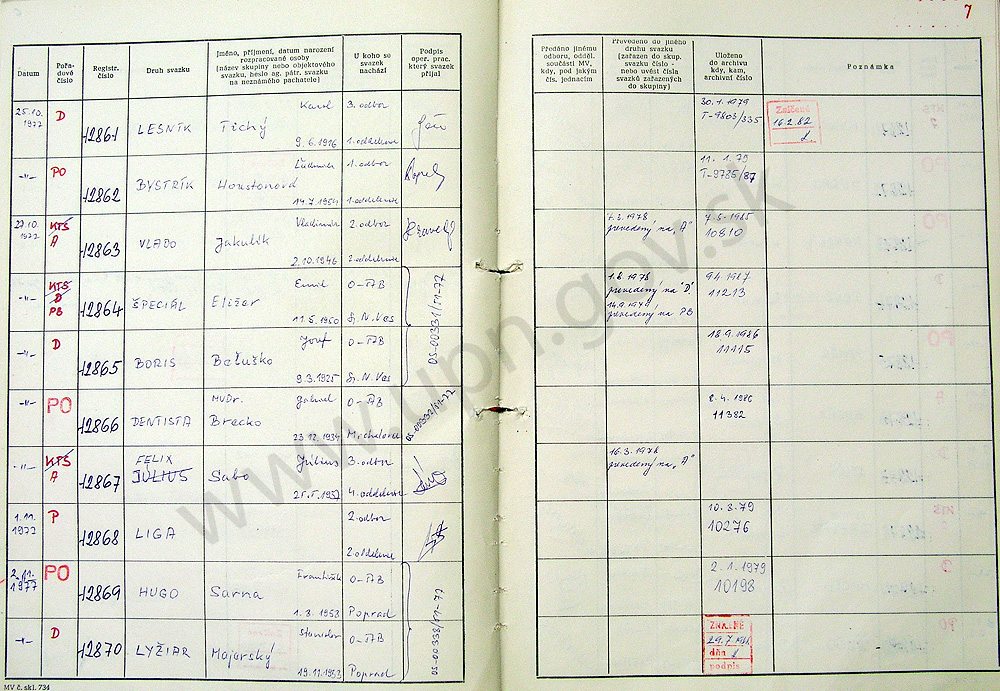 7
Datum
Pořadové číslo
Registr. číslo
Druh svazku
Jméno, příjmení, datum narození rozpracované osoby (název skupiny nebo objektového svazku, heslo ag. pátr. svazku na neznámého pachatele)
U koho se svazek nachází
Podpis oper. prac. který svazek přijal
Předáno jinému odboru, odděl. součásti MV, kdy, pod jakým čís. jednacím
Převedeno do jiného druhu svazku (zařazen do skup. svazku číslo - nebo uvést čísla svazků zařazených do skupiny)
Uloženo do archivu kdy, kam, archivní číslo
Poznámka
25.10. 1977 D 12861 LESNÍK Tichý Karol 9.6.1916 3. odbor 1. oddelenie
30.1.1979 T-9803/335
Zničené 16.2.82
-"- PO 12862 BYSTRÍK Houstonová Ľudmila 14.7.1954 1. odbor 1. oddelenie
11.1.79 T-9785/87
27.10. 1977 KTS A 12863 VLADO Jakulík Vladimír 2.10.1946 2. odbor 2. oddelenie
7.3.1978 prevedený na "A"
7.5.1985 10810
-"- KTS D PB 12864 ŠPECIÁL Elizer Emil 11.5.1950 O-ŠTB Sp. N. Ves
1.8.1978 prevedený na "D"
prevedený na PB
9.4.1987 11213
OS-00331/ST-77
-"- D 12865 BORIS Beluško Jozef 9.3.1925 O-ŠTB Sp. N. Ves
18.9.1986 11115
-"- PO 12866 DENTISTA MVDr. Brecko Gabriel 23.12.1934 O-ŠTB Michalovce
OS-00332/ST-77
8.4.1986 11382
-"- KTS A 12867 FELIX JÚLIUS Sabo Július 3. odbor 4. oddelenie
16.3.1978 prevedený na "A"
1.11. 1977 P 12868 LIGA 2. odbor 2. oddelenie
10.8.79 10276
2.11. 1977 PO 12869 HUGO Sarna František 1.8.1953 O-ŠTB Poprad
2.1.1979 10198
OS-00338/ST-77
-"- D 12870 LYŽIAR Majerský Stanislav 19.11.1953 O-ŠTB Poprad
dňa
podpis
MV č. skl. 734
www.upn.gov.sk